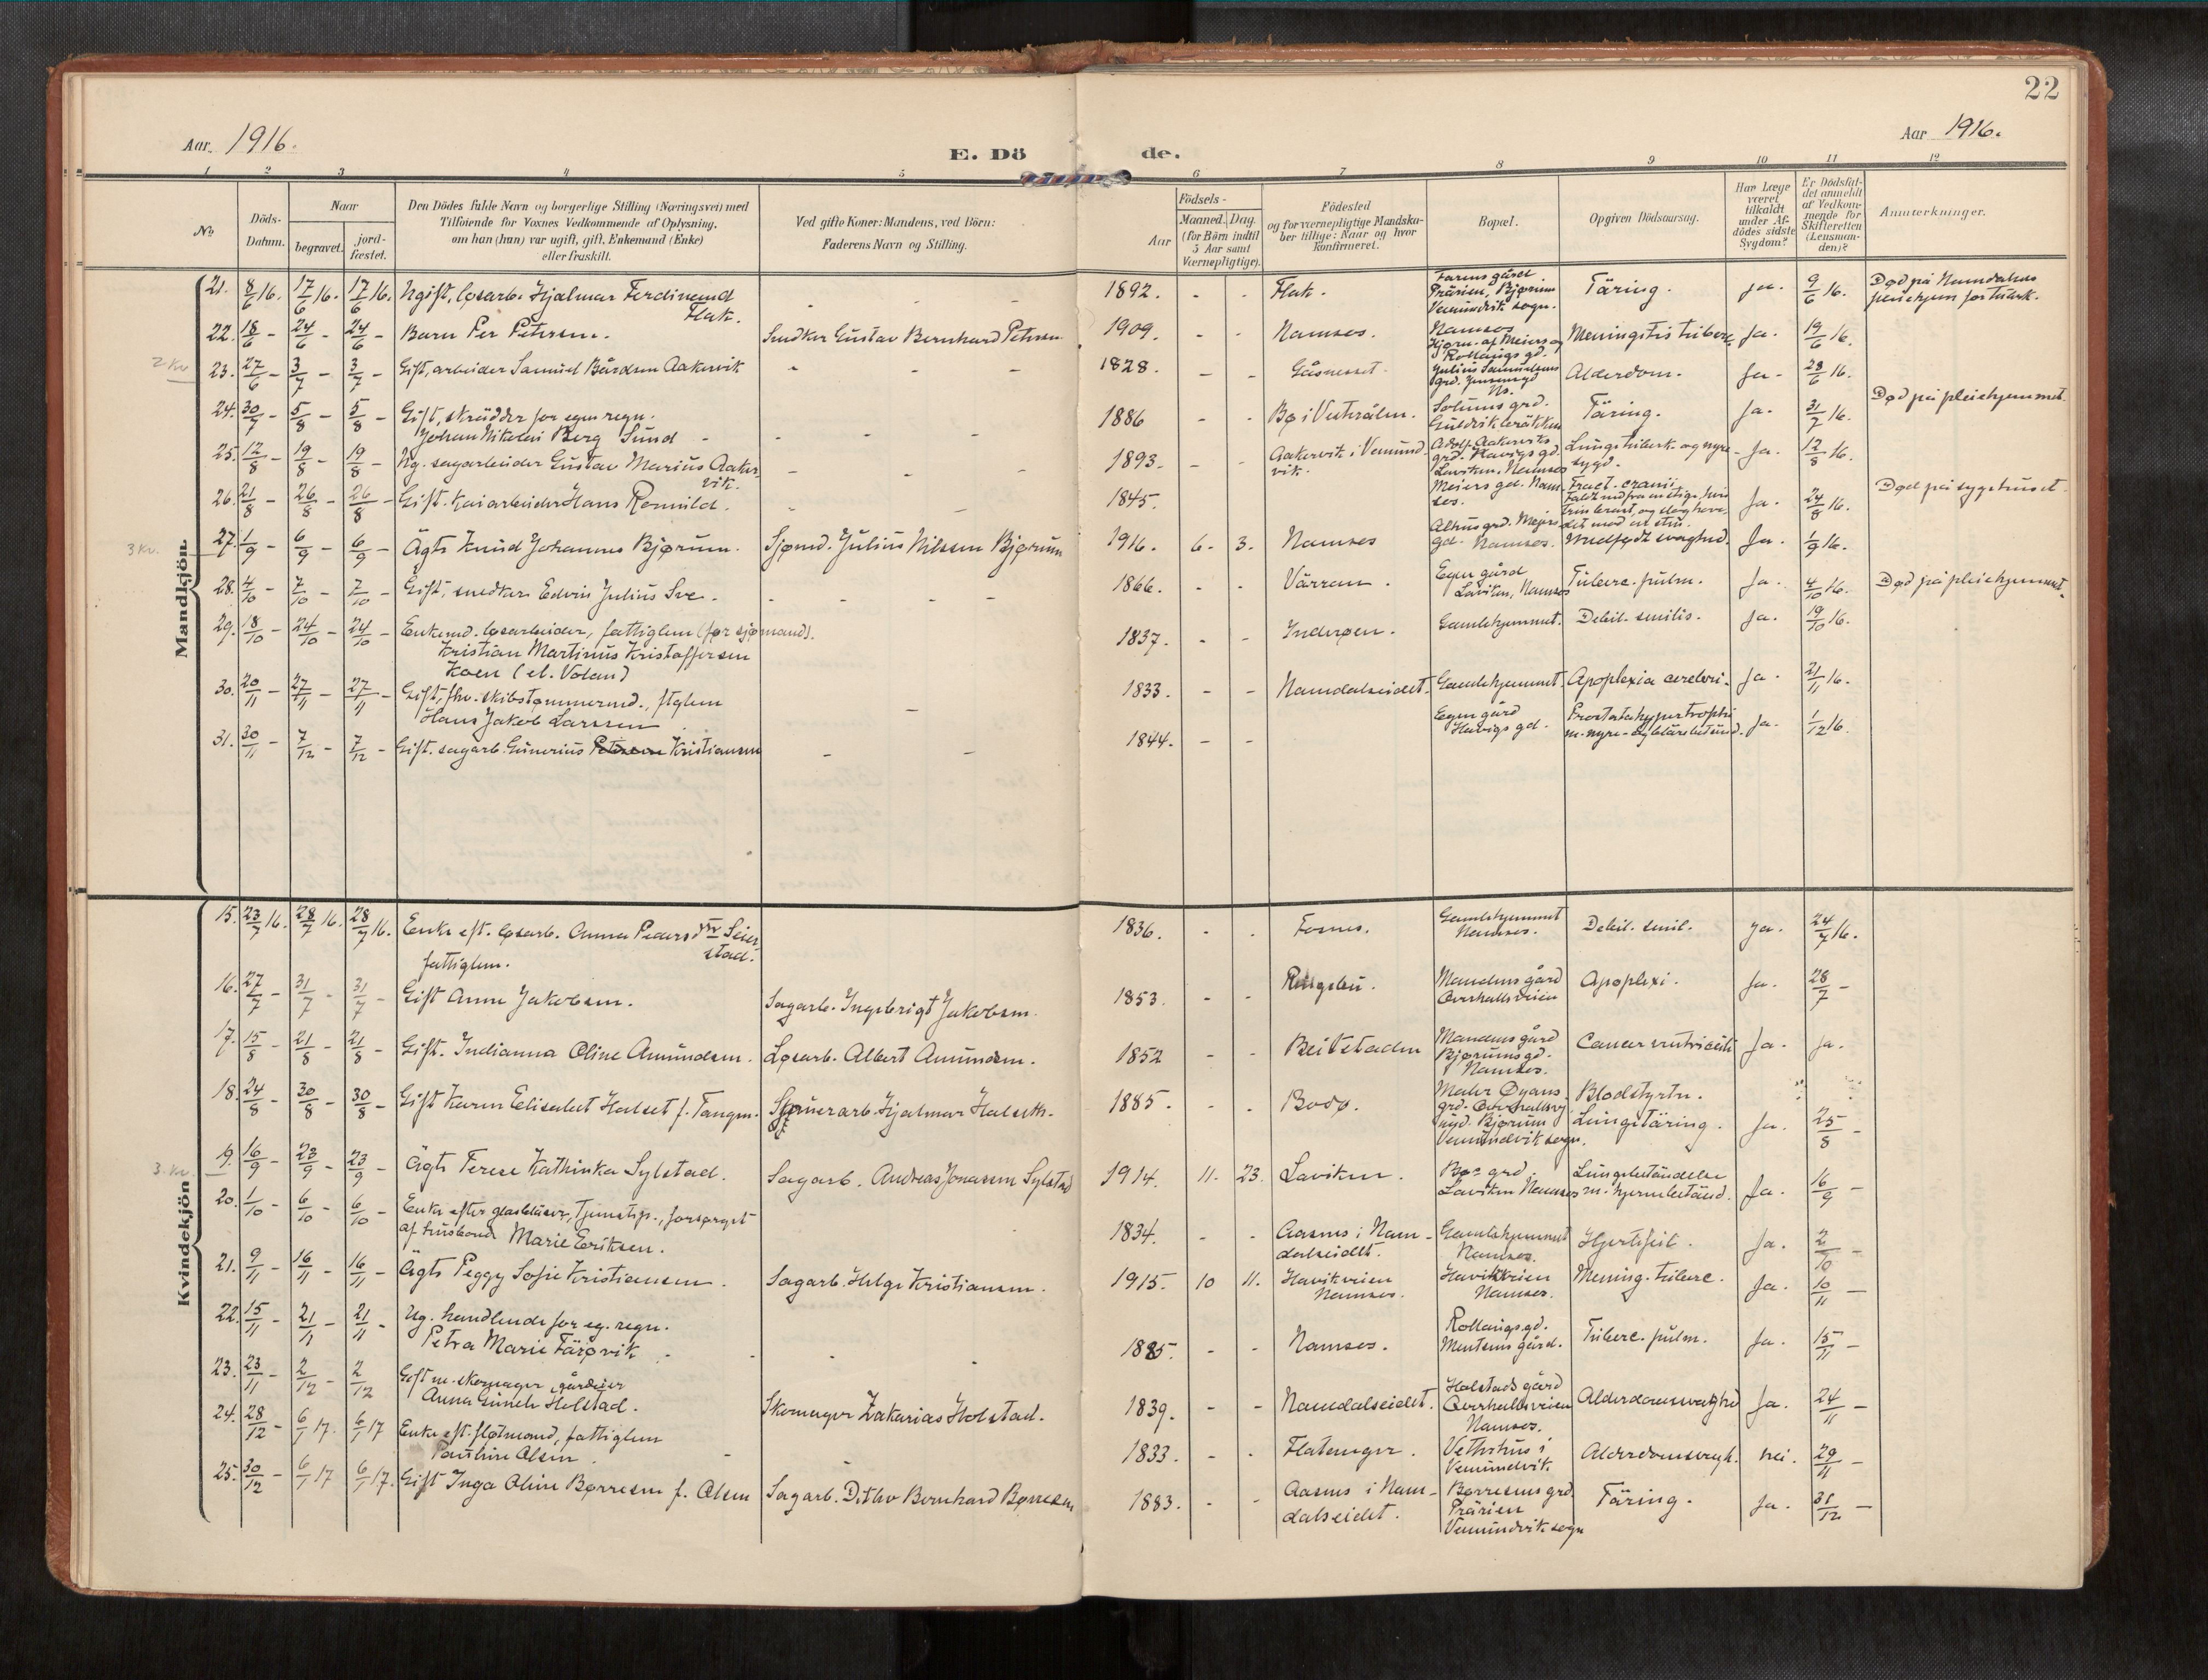 22
Aar 1916.
E. Dö de.
Aar 1916.
1 2 3 4 5 6 7 8 9 10 11 12
No
Döds-Datum.
Naar
begravet.
jord-fæstet.
Den Dödes fulde Navn og borgerlige Stilling (Næringsvei) med
Tilföiende for Voxnes Vedkommende af Oplysning,
om han (hun) var ugift, gift, Enkemand (Enke)
eller fraskilt.
Ved gifte Koner: Mandens, ved Börn:
Faderens Navn og Stilling.
Födsels-
Aar
Maaned. Dag.
(for Börn indtil
5 Aar samt
Værnepligtige).
Födested
og for værnepligtige Mandska-
ber tillige: Naar og hvor
konfirmeret.
Bopæl.
Opgiven Dödsaarsag.
Har Læge
været
tilkaldt
under Af-
dödes sidste
Sygdom?
Er Dödsfal-
det anmeldt
af Vedkom-
mende for
Skifteretten
(Lensman-
den)?
Anmerkninger.
Mandkjön.
21. 8/6 16. 17/6 16. 17/6 16. Ugift, løsarb. Hjalmar Ferdinand
Flak.
- - - 1892. - - Flak.
gård
Prärien, Bjørum
Vemundvik sogn.
Täring. ja. 9/6 16.
Død på Namdalens
pleiehjem for tuberk.
22. 18/6 - 24/6 - 24/6 - Barn Per Petersen. Snedker Gustav Bernhard Petersen 1909. - - Namsos.
Namsos
Hjørn. af Meiers og
Rollaugs gd.
Meningitis tuberc. Ja. 19/6 16.
2 Kv
23. 27/6 - 3/7 - 3/7 - Gift, arbeider Samuel Bårdsen Aakervik - - - 1828. - - Gåsneset.
Julius Samuelsens
grd.
Ns.
Alderdom. Ja - 28/6 16.
24. 30/7 - 5/8 - 5/8 - Gift, skrädder for egen regn.
Johan Nikolai Berg Sund - - - 1886 - - Bø i Vesterålen.
Solums grd.
Guldvikbräkken
Täring. Ja. 31/7 16. Død på pleiehjemmet.
25. 12/8 - 19/8 - 19/8 - Ug. sagarbeider Gustav Marius Aaker-
vik.
- - - 1893. - - Aakervik i Vemund-
vik.
Adolf Aakerviks
grd. Havigs gd.
Laviken, Namsos
Lungetuberk. og nyre-
sygd.
Ja. 12/8 16.
26. 21/8 - 26/8 - 26/8 - Gift. kaiarbeider Hans Romuld. - - 1845.
Meiers gd. Nam-
sos.
Fract. cranii
Faldt ned fra en stige, hvis
trin brast, og slog hove-
det mod en sten.
Ja. 24/8 16. Død på sygehuset.
3 Kv.
27. 1/9 - 6/9 - 6/9 - Ägte Knud Johannes Bjørum. Sjømd. Julius Nilssen Bjørum 1916. 6. 3. Namsos
grd. Meiers
gd. Namsos.
Medfødt svaghed. Ja. 1/9 16.
28. 4/10 - 7/10 - 7/10 - Gift, snedker Edvin Julius Sve. - - - - 1866. - - Värran.
Egen gård
Laviken, Namsos
Tuberc. pulm. Ja. 4/10 16. Død på pleiehjemmet.
29. 18/10 - 24/10 - 24/10 - Enkemd. løsarbeider, fattiglem (før sjømand).
Kristian Martinus Kristoffersen
Koen (el. Volan)
1837. - - Inderøen. Gamlehjemmet. Debil. senilis. Ja. 19/10 16.
30. 20/11 - 27/11 - 27/11 - Gift, fhv. skibstømmermd., ftglem
Hans Jakob Larssen
- 1833. - - Namdalseidet. Gamlehjemmet. Apoplexia cerebri. Ja. 21/11 16.
31. 30/11 - 7/12 - 7/12 - Gift. sagarb. Gunerius Petersen Kristiansen - - 1844. - -
Egen gård
Havigs gd.
Prostatahypertrophi
m. nyre- og blärebetänd.
Ja. 1/12 16.
Kvindekjön
15. 23/7 16. 28/7 16. 28/7 16. Enke eft. løsarb. Anna Pedersdtr Seier-
stad.
fattiglem.
1836. - - Fosnes.
Gamlehjemmet
Namsos.
Debil. senil. ja. 24/7 16.
16. 27/7 - 31/7 - 31/7 - Gift Anne Jakobsen. Sagarb. Ingebrigt Jakobsen. 1853. - - Ringebu.
Mandens gård
Overhallsveien
Apoplexi. Ja. 28/7 -
17. 15/8 - 21/8 - 21/8 - Gift. Indianna Oline Amundsen. Løsarb. Albert Amundsen. 1852 - - Beitstaden
Mandens gård
Bjørumsgd.
Namsos.
Cancer ventriculi Ja. ja.
18. 24/8 - 30/8 - 30/8 - Gift Karen Elisabet Halset f. Tangen. Hjalmar Halseth. 1885. - - Bodø.
Maler Dyans
grd. Overhallsv.
Bjørum
Vemundvik sogn.
Blodstyrtn.
Lungetäring.
Ja. 25/8 -
3. Kv.
9. 16/9 - 23/9 - 23/9 - Ägte Terese Kathinka Sylstad. Sagarb. Andreas Jonassen Sylstad 1914. 11. 23. Laviken.
grd.
Laviken Namsos
Lungebetändelse
m. hjernebetänd.
Ja. 16/9 -
20. 1/10 - 6/10 - 6/10 - Enke efter glasblåser, Tjenestep., forsørget
af husbond Marie Eriksen.
1834. - - Aasnes i Nam-
dalseidet.
Gamlehjemmet
Namsos.
Hjertefeil. Ja. 2/10 -
21. 9/11 - 16/11 - 16/11 - Ägte Peggy Sofie Kristiansen. Sagarb. Helge Kristiansen. 1915. 10 11. Havikveien
Namsos.
Havikveien
Namsos.
Mening. tuberc. Ja. 10/11 -
22. 15/11 - 21/11 - 21/11 - Ug. handlende for eg. regn.
Petra Marie Färøvik - - - 1885. - - Namsos.
Rollaugs gd.
Mentsens gård.
Tuberc. pulm. Ja. 15/11 -
23. 23/11 - 2/12 - 2/12 Gift m. skomager, gårdeier
Anna Gunele Holstad.
Skomager Zakarias Holstad. 1839. - - Namdalseidet.
Holstads gård
Overhallsveien
Namsos.
Alderdomssvaghed Ja. 24/11 -
24. 28/12 - 6/1 17. 6/1 17 Enke eft. fløtmand, fattiglem
Pauline Olsen
- - 1833. - - Flatanger.
Vethshus i
Vemundvik
Alderdomssvagh. nei. 29/11 -
25. 30/12 - 6/1 17 6/1 17. Gift Inga Oline Børresen f. Olsen Sagarb. Ditlev Bernhard Børresen 1883. - - Aasnes i Nam-
dalseidet.
Børresens grd.
Prärien
Vemundvik sogn
Täring. Ja. 31/12 -